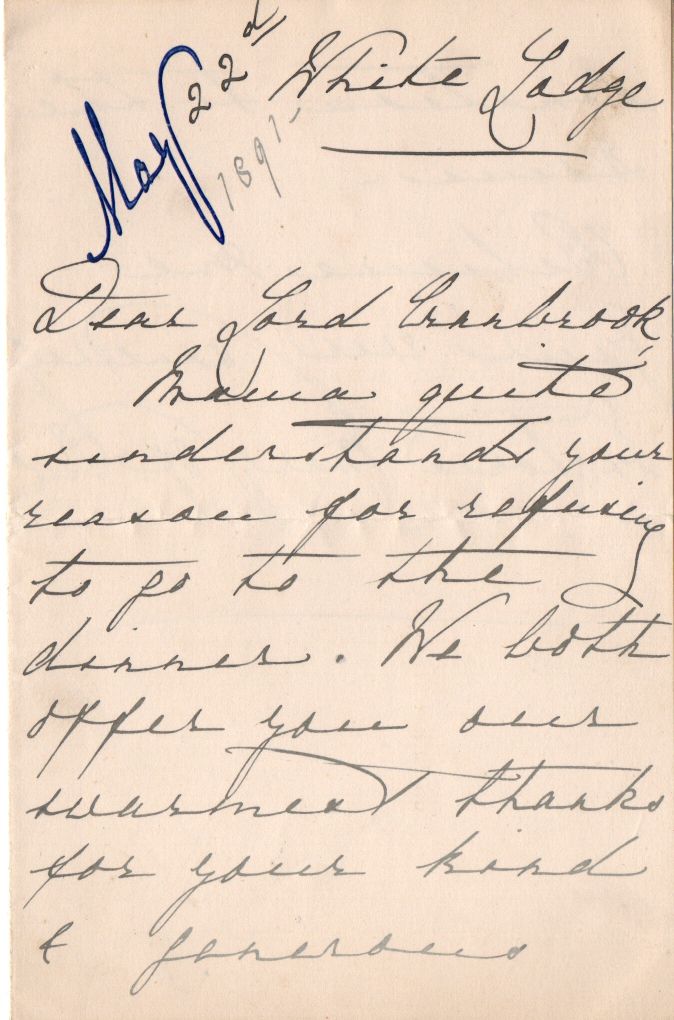 May 22d
1891-
White Lodge
Dear Lord Cranbrook,
Mama quite
understands your
reason for refusing
to go to the
dinner. We both
offer you our
warmest thanks
for your kind
& generous